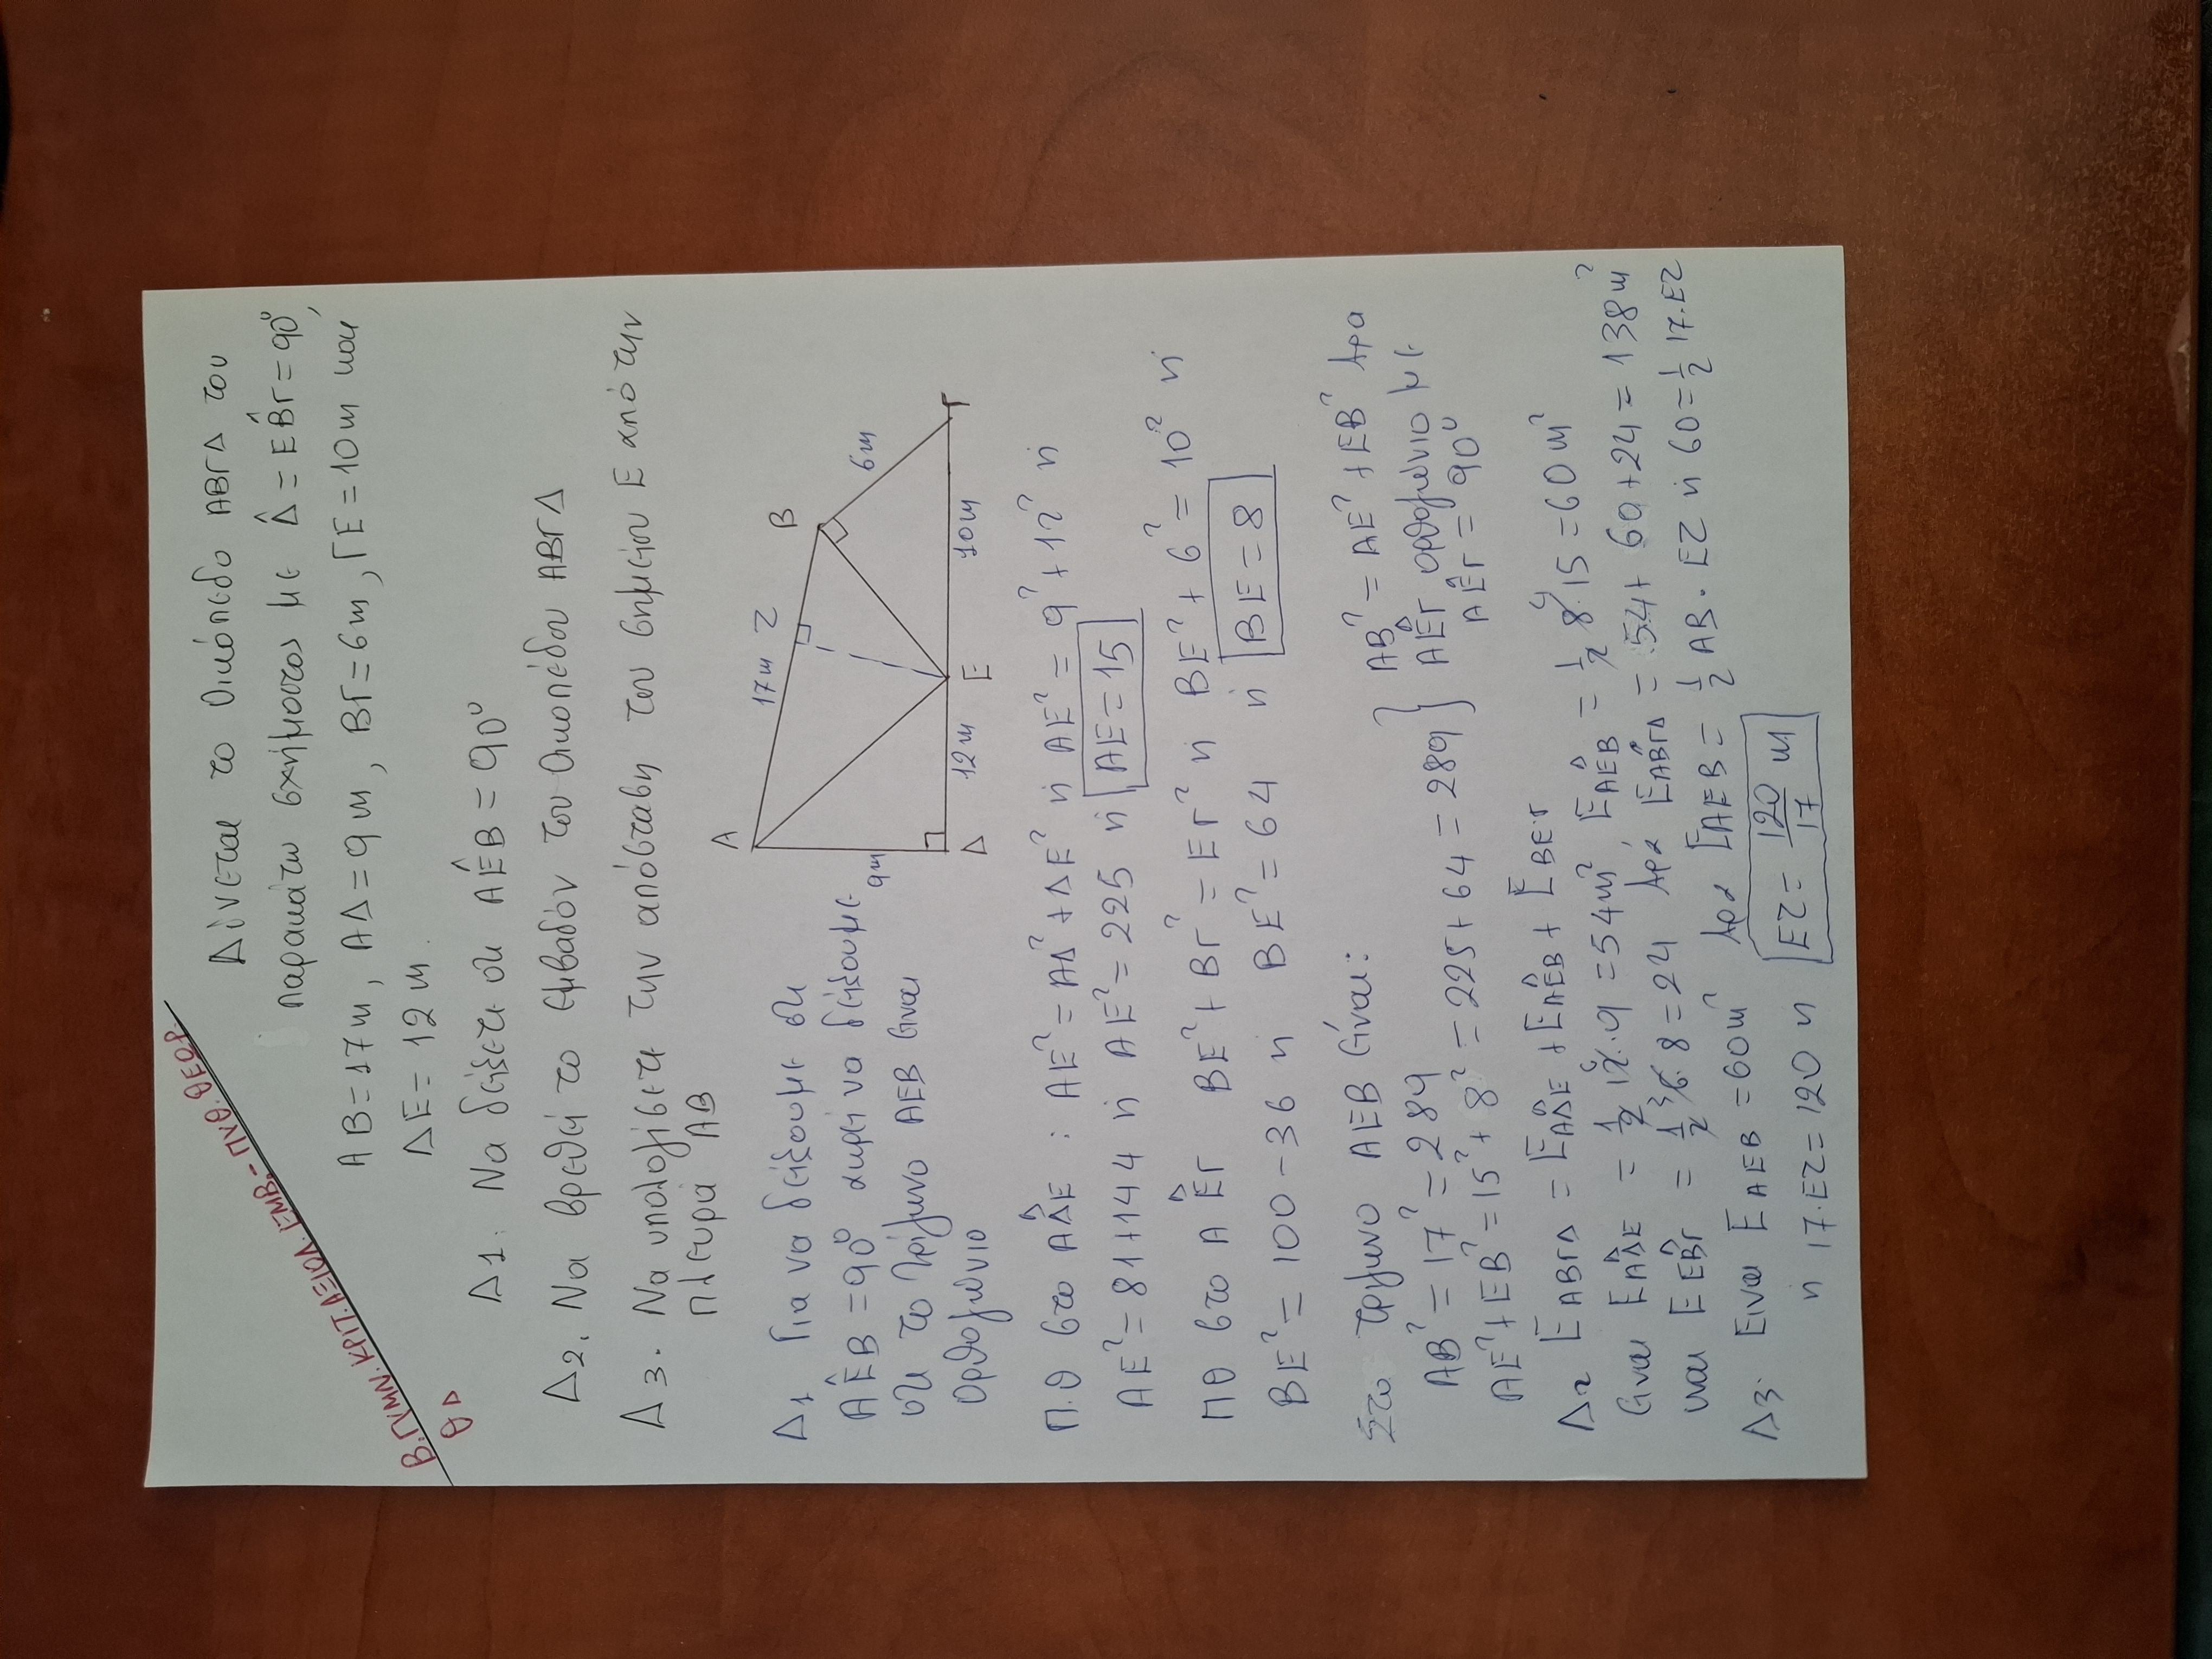 Β.ΓΥΜΝ. ΚΡΙΤ. ΑΞΙΟΛ. ΕΜΒ.-ΠΥΘ. ΘΕΩΡ.
ΘΔ
Δίνεται το οικόπεδο ΑΒΓΔ του
παρακάτω σχήματος με Δ̂ = ΕB̂Γ = 90⁰,
ΑΒ = 17m, ΑΔ = 9m, ΒΓ = 6m, ΓΕ = 10m και
ΔΕ = 12m.
Δ1. Να δείξετε ότι ΑÊΒ = 90⁰
Δ2. Να βρεθεί το εμβαδόν του οικοπέδου ΑΒΓΔ
Δ3. Να υπολογίσετε την απόσταση του σημείου Ε από την
πλευρά ΑΒ
Α
17m
Ζ
Β
6m
9m
Δ
12m
Ε
10m
Γ
Δ1 Για να δείξουμε ότι
ΑÊΒ = 90⁰ αρκεί να δείξουμε
ότι το τρίγωνο ΑΕΒ είναι
ορθογώνιο
Π.Θ στο ΑΔ̂Ε : ΑΕ² = ΑΔ² + ΔΕ² ή ΑΕ² = 9² + 12² ή
ΑΕ² = 81+144 ή ΑΕ² = 225 ή ΑΕ = 15
ΠΘ στο ΑÊΓ ΒΕ² + ΒΓ² = ΕΓ² ή ΒΕ² + 6² = 10² ή
ΒΕ² = 100 - 36 ή ΒΕ² = 64 ή ΒΕ = 8
Στο τρίγωνο ΑΕΒ είναι:
ΑΒ² = 17² = 289
ΑΕ² + ΕΒ² = 15² + 8² = 225 + 64 = 289 }
ΑΒ² = ΑΕ² + ΕΒ² Άρα
ΑÊΓ ορθογώνιο με
ΑÊΓ = 90⁰
Δ2 ΕΑΒΓΔ = ΕΑΔ̂Ε + ΕΑÊΒ + ΕΒΕΓ
είναι ΕΑΔ̂Ε = 1/2 12·9 = 54m², ΕΑÊΒ = 1/2 8·15 = 60m²
και ΕΕB̂Γ = 1/2 6·8 = 24 Άρα ΕΑΒΓΔ = 54 + 60 + 24 = 138m²
Δ3. Είναι ΕΑΕΒ = 60m² Άρα ΕΑΕΒ = 1/2 ΑΒ·ΕΖ ή 60 = 1/2 17·ΕΖ
ή 17·ΕΖ = 120 ή ΕΖ = 120/17 m